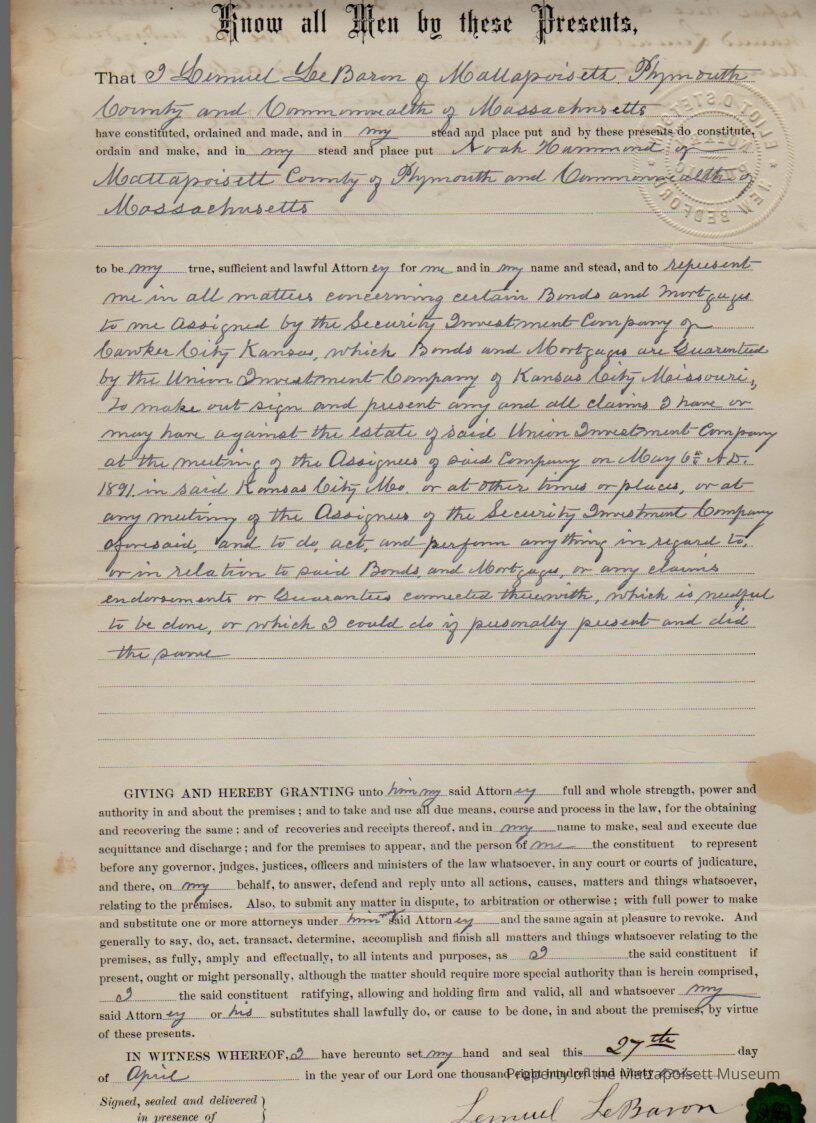 Know all Men by these Presents,
That I Lemuel LeBaron of Mattapoisett, Plymouth
County and Commonwealth of Massachusetts
have constituted, ordained and made, and in my stead and place put and by these presents do constitute,
ordain and make, and in my stead and place put Noah Hammond of
Mattapoisett County of Plymouth and Commonwealth of
Massachusetts
to be my true, sufficient and lawful Attorney for me and in my name and stead, and to represent
me in all matters concerning certain Bonds and Mortgages
to me Assigned by the Security Investment Company of
Cawker City Kansas, which Bonds and Mortgages are Guarenteed
by the Union Investment Company of Kansas City Missouri,
To make out sign and present any and all claims I have or
may have against the estate of said Union Investment Company
at the meeting of the Assignees of said Company on May 6th A.D.
1891. in said Kansas City Mo. or at other times or places, or at
any meeting of the Assignees of the Security Investment Company
aforesaid, and to do, act, and perform anything in regard to,
or in relation to said Bonds, and Mortgages, or any claims
endorsements or Guarantees connected therewith, which is needful
to be done, or which I could do if personally present and did
the same
GIVING AND HEREBY GRANTING unto him my said Attorney full and whole strength, power and
authority in and about the premises; and to take and use all due means, course and process in the law, for the obtaining
and recovering the same; and of recoveries and receipts thereof, and in my name to make, seal and execute due
acquittance and discharge; and for the premises to appear, and the person of me the constituent to represent
before any governor, judges, justices, officers and ministers of the law whatsoever, in any court or courts of judicature,
and there, on my behalf, to answer, defend and reply unto all actions, causes, matters and things whatsoever,
relating to the premises. Also, to submit any matter in dispute, to arbitration or otherwise; with full power to make
and substitute one or more attorneys under him my said Attorney and the same again at pleasure to revoke. And
generally to say, do, act, transact, determine, accomplish and finish all matters and things whatsoever relating to the
premises, as fully, amply and effectually, to all intents and purposes, as I the said constituent if
present, ought or might personally, although the matter should require more special authority than is herein comprised,
I the said constituent ratifying, allowing and holding firm and valid, all and whatsoever my
said Attorney or his substitutes shall lawfully do, or cause to be done, in and about the premises, by virtue
of these presents.
IN WITNESS WHEREOF, I have hereunto set my hand and seal this 27th day
of April in the year of our Lord one thousand eight hundred and ninety one
Property of the Mattapoisett Museum
Signed, sealed and delivered
in presence of
Lemuel LeBaron